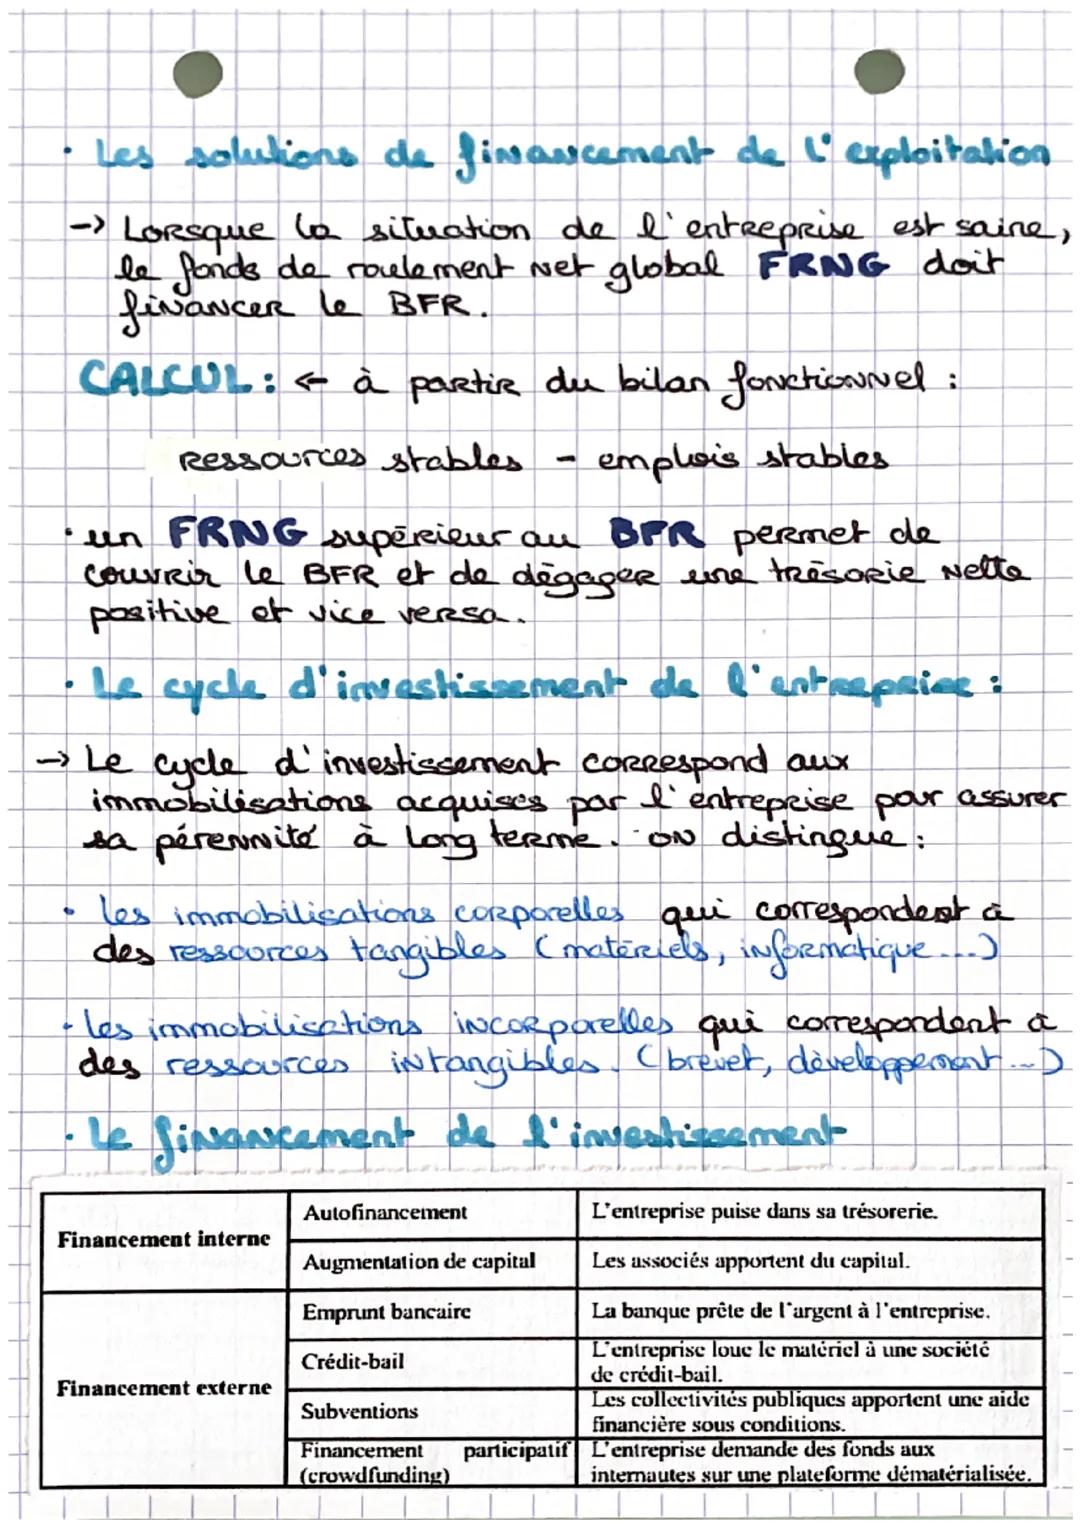 · Les solutions de financement de l'exploitation
-> Lorsque la situation de l'entreprise est saine,
le fonds de roulement net global FRNG doit
financer le BFR.
CALCUL : ← à partir du bilan fonctionnel :
Ressources stables - emplois stables
· un FRNG supérieur au BFR permet de
couvrir le BFR et de dégager une trésorie nette
positive et vice versa.
· Le cycle d'investissement de l'entreprise :
→ Le cycle d'investissement correspond aux
immobilisations acquises par l'entreprise pour assurer
sa pérennité à long terme. on distingue :
· les immobilisations corporelles qui correspondent à
des ressources tangibles (matériels, informatique...)
· les immobilisations incorporelles qui correspondent à
des ressources intangibles. (brevet, développement...)
· Le financement de l'investissement
Financement interne
Autofinancement
L'entreprise puise dans sa trésorerie.
Augmentation de capital
Les associés apportent du capital.
Financement externe
Emprunt bancaire
La banque prête de l'argent à l'entreprise.
Crédit-bail
L'entreprise loue le matériel à une société
de crédit-bail.
Subventions
Les collectivités publiques apportent une aide
financière sous conditions.
Financement participatif
(crowdfunding)
L'entreprise demande des fonds aux
internautes sur une plateforme dématérialisée.